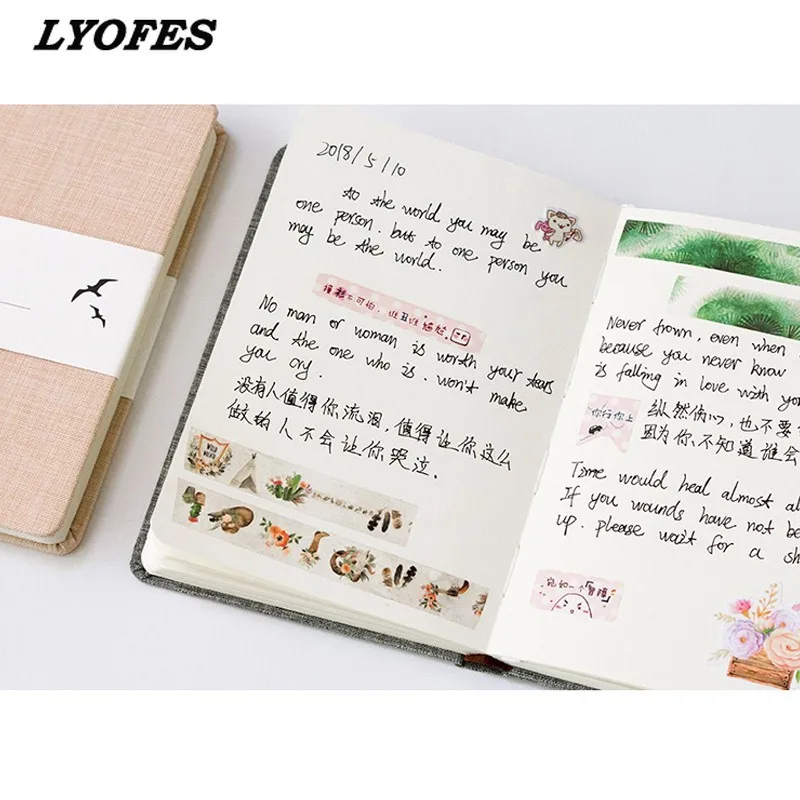 LYOFES
2018/5/10
to the world you may be
one person. but to one person you
may be the world.
不可怕,
No man or woman is worth your tears
and the one who is. won't make
you cry.
没有人值得你流泪,值得让你这么
做的人不会让你哭泣.
Never frown, even when
because you never know
is falling in love with yo
你行你上
纵然伤心,也不要
因为你不知道谁会
Time would heal almost al
If you wounds have not be
up. please wait for a sh